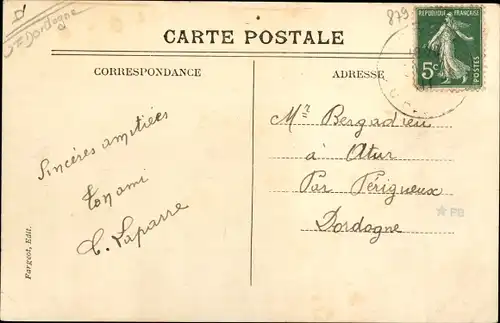 Dordogne
879
CARTE POSTALE
RÉPUBLIQUE FRANÇAISE
5c
POSTES
CORRESPONDANCE
ADRESSE
Sincères amitiées
Ton ami
C. Laparre
Mr Bergadieu
à Atur
Par Périgueux
Dordogne
Fargeot, Edit.
PB